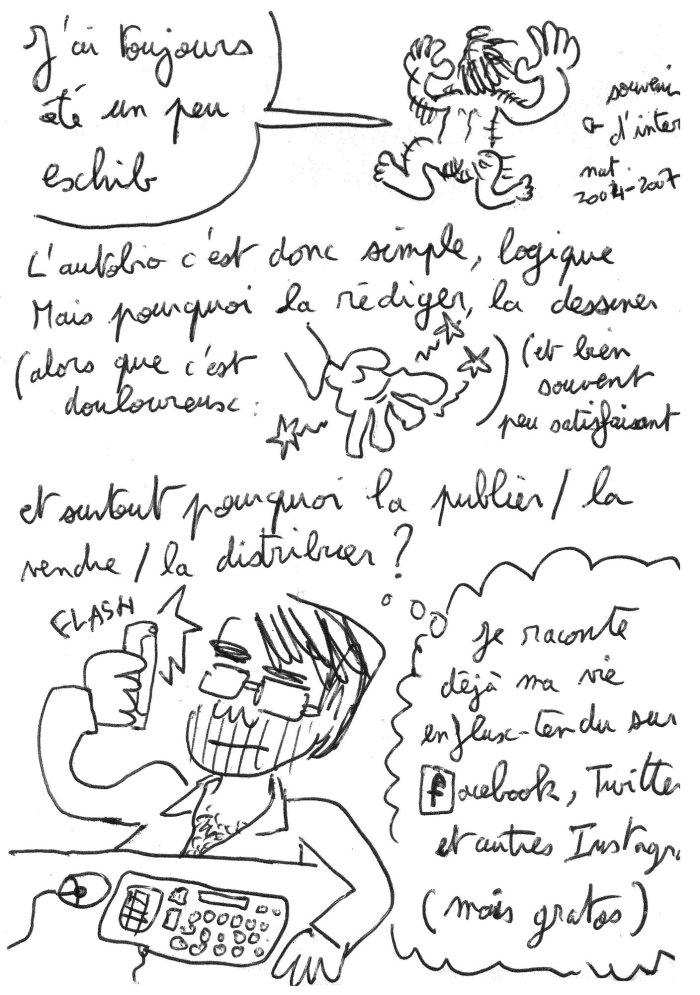 J'ai toujours
été un peu
exhib
souvenir
d'inter
nat
2004-2007
L'autobio c'est donc simple, logique
Mais pourquoi la rédiger, la dessiner
(alors que c'est
douloureux :
) (et bien
souvent
peu satisfaisant
et surtout pourquoi la publier / la
vendre / la distribuer ?
FLASH
je raconte
déjà ma vie
en flux-tendu sur
facebook, Twitte
et autres Instagra
(mais gratos)